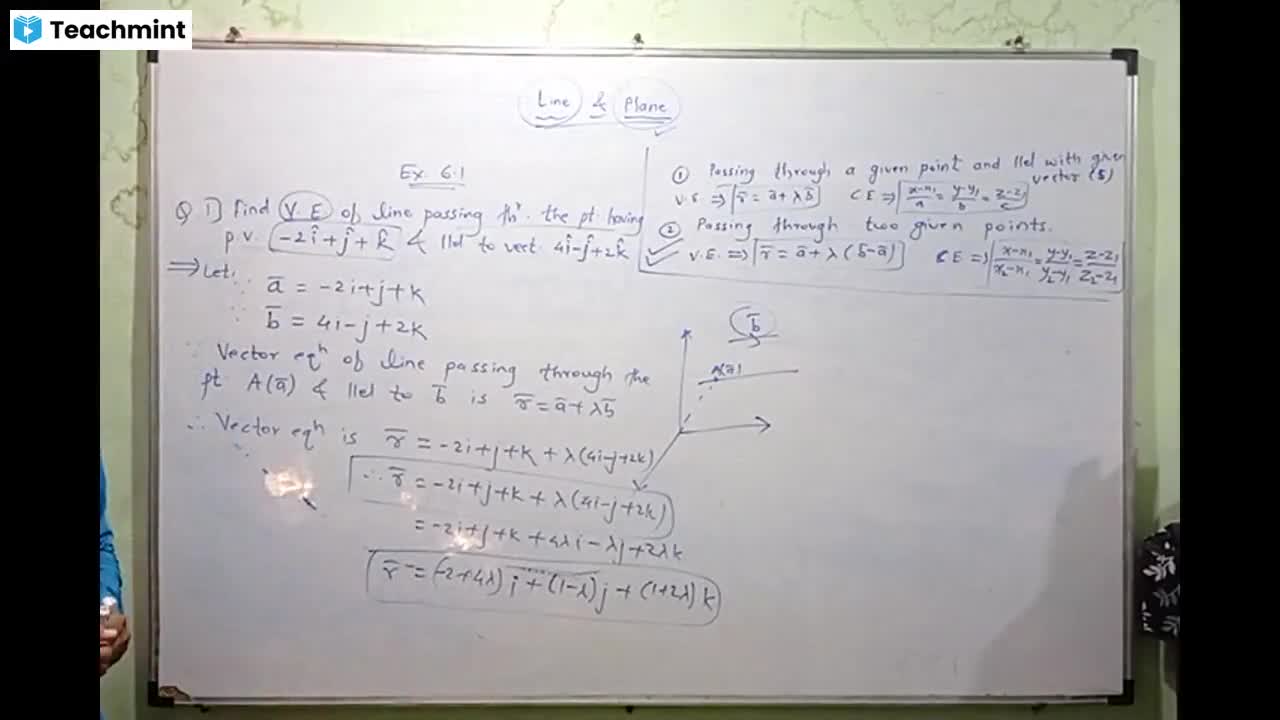 Teachmint
Line & Plane
Ex. 6.1
Q 1] Find V.E of line passing thr. the pt. having
p.v. -2î+ĵ+k̂ & llel to vect. 4î-ĵ+2k̂
⇒ Let,
∵ a̅ = -2i+j+k
∵ b̅ = 4i-j+2k
∵ Vector eqn of line passing through the
pt. A(a̅) & llel to b̅ is r̅ = a̅+λb̅
∴ Vector eqn is r̅ = -2i+j+k + λ(4i-j+2k)
∴ r̅ = -2i+j+k + λ(4i-j+2k)
= -2i+j+k + 4λi - λj + 2λk
r̅ = (-2+4λ)i + (1-λ)j + (1+2λ)k
① Passing through a given point and llel with given
vector (b̅)
V.E ⇒ r̅ = a̅+λb̅ C.E ⇒ x-x₁/a = y-y₁/b = z-z₁/c
② Passing through two given points.
V.E. ⇒ r̅ = a̅ + λ(b̅-a̅) C.E ⇒ x-x₁/x₂-x₁ = y-y₁/y₂-y₁ = z-z₁/z₂-z₁
b̅
A(a̅)